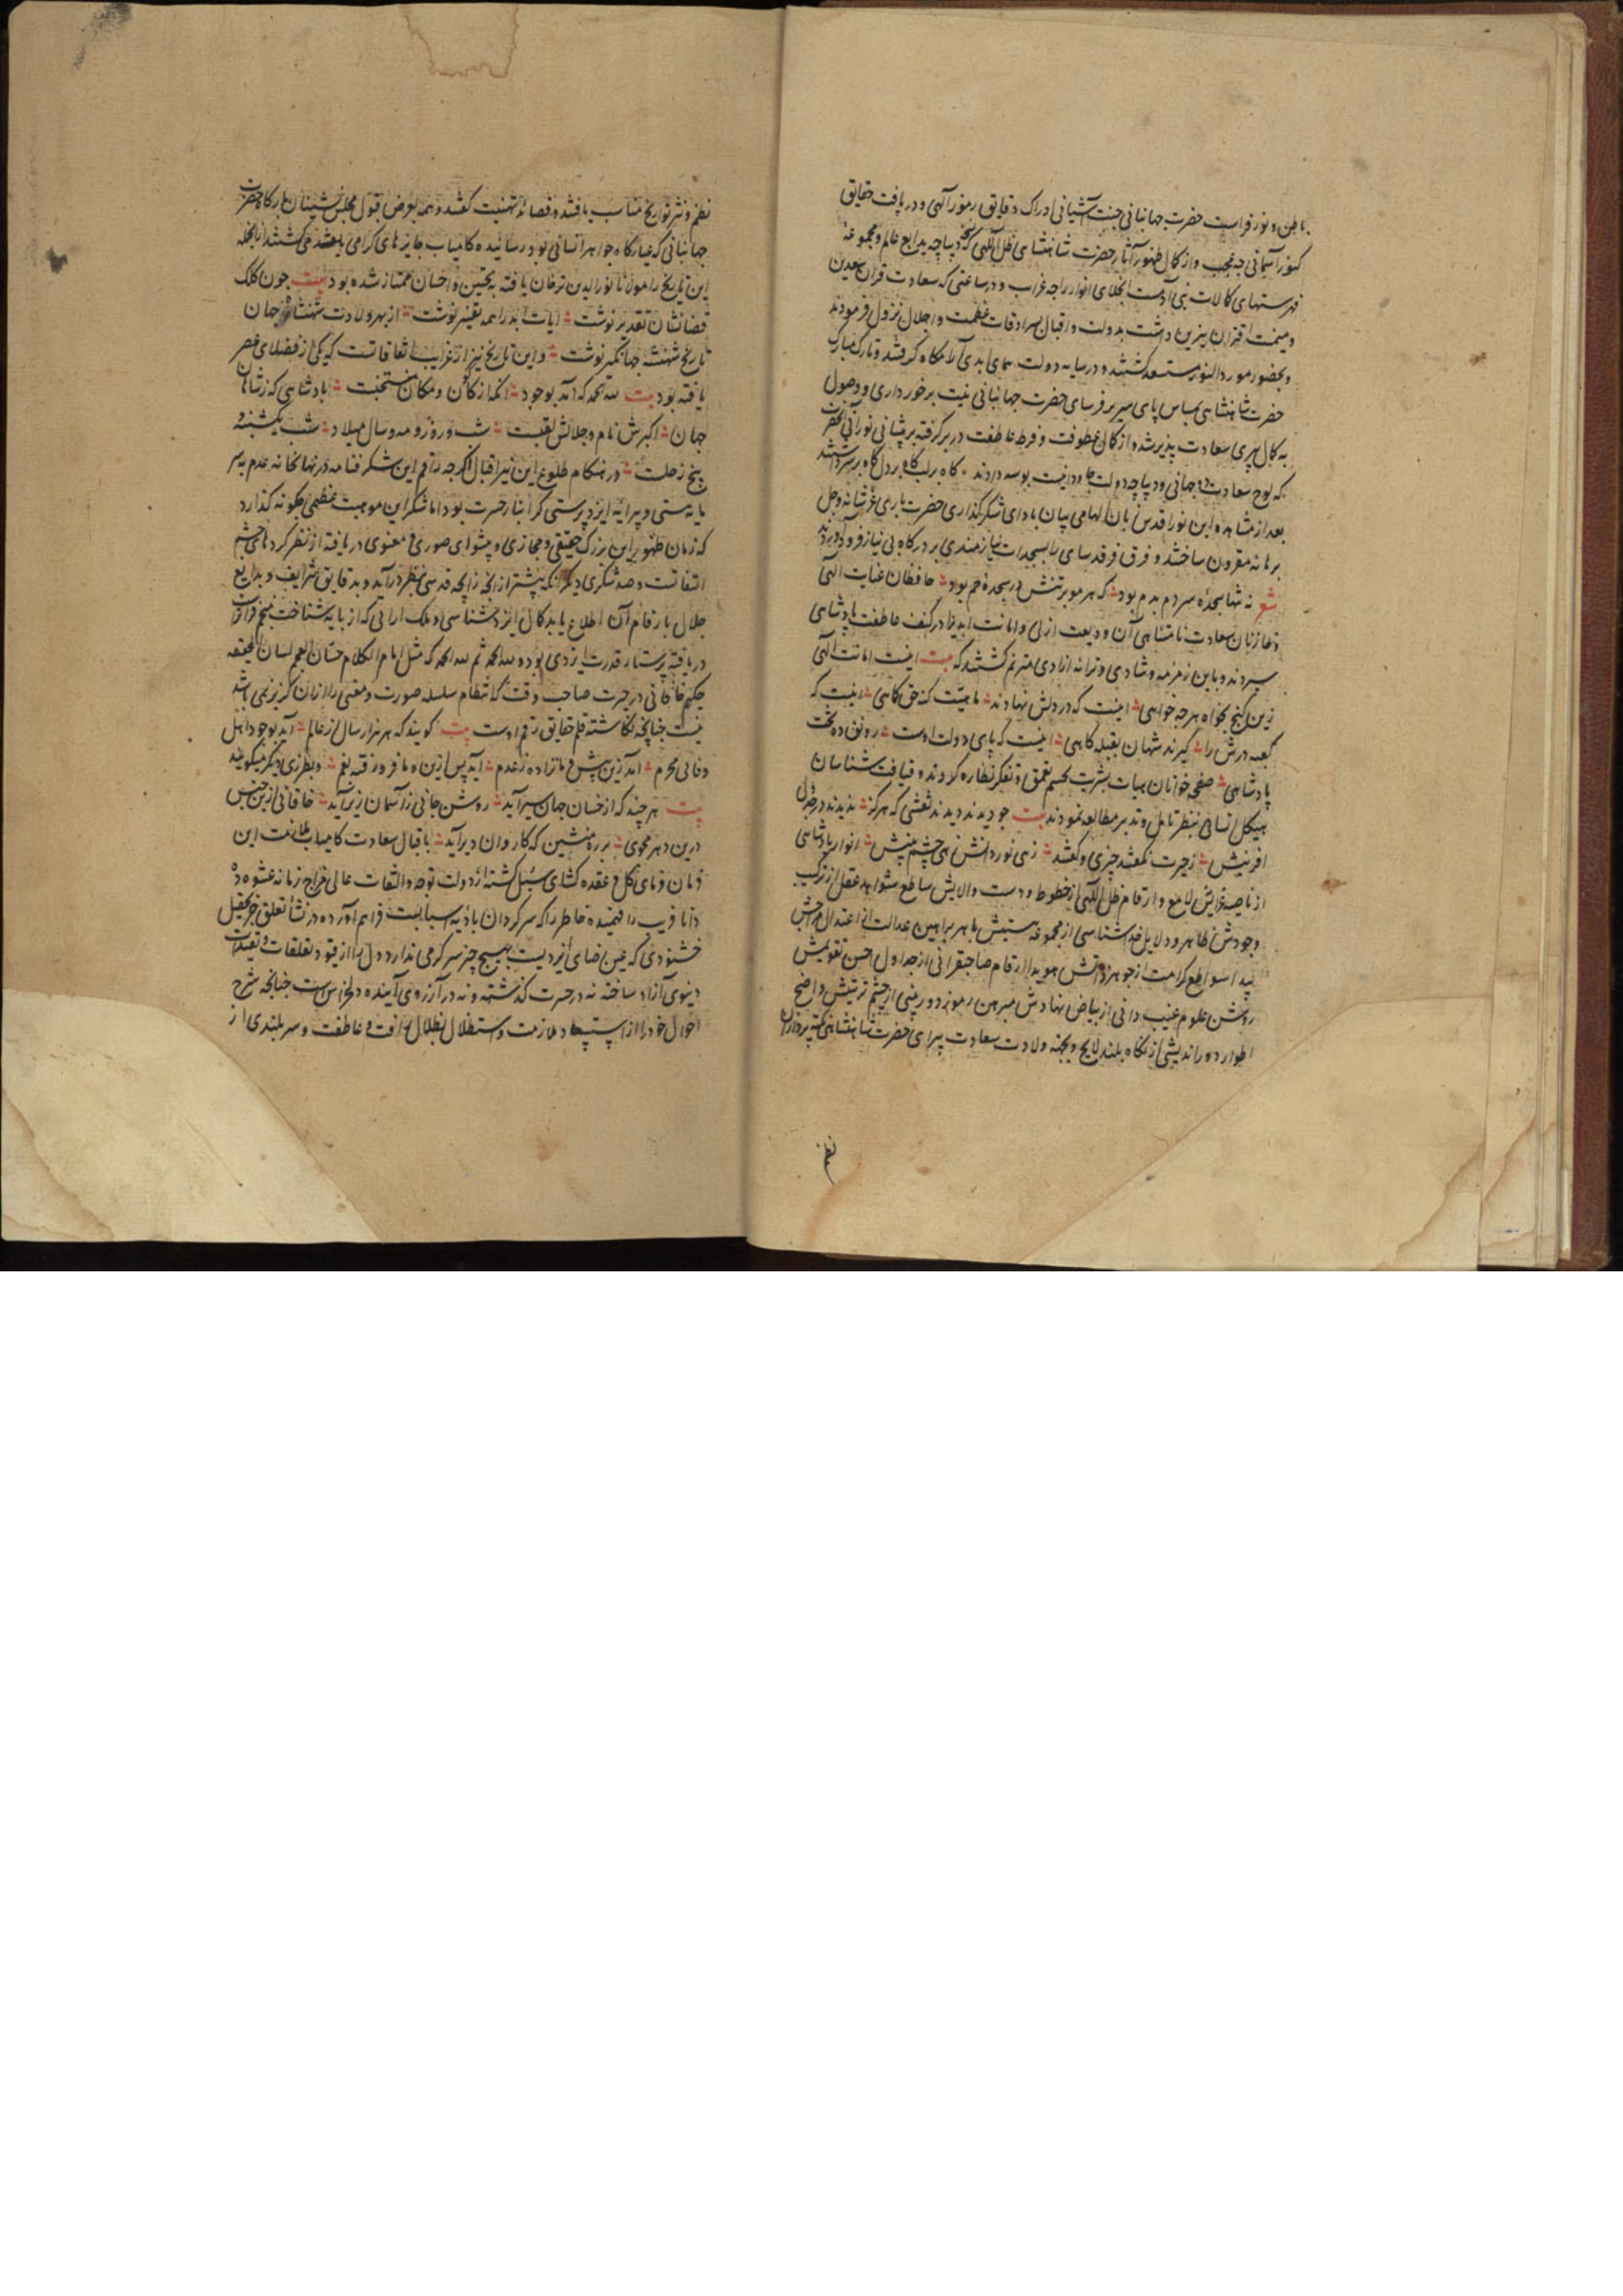 باطن و نور فراست حضرت جهانبانی جنت آشیانی ادراک دقایق رموز آلهی و دریافت حقایق
کنوز آسمانی چه عجب و از کمال ظهور آثار حضرت شاهنشاهی ظل آللهی که دیباچه بدایع عالم و مجموعه
فهرستهای کمالات بنی آدمست انجلای انوار را چه غراب و در ساعتی که سعادت قران سعدین
و میمنت اقتران نیرین داشت بدولت و اقبال بسرادقات عظمت و اجلال نزول فرمودند
و بحضور مورد النور مستسعد گشتند و در سایه دولت همای ابدی آرامگاه گرفتند و تارک مبارک
حضرت شاهنشاهی بمساس پای سریر فرسای حضرت جهانبانی نیت برخورداری و وصول
به کمال پیری سعادت پذیر شد و از کمال عطوفت و فرط عاطفت در بر گرفته بر پیشانی نورانی آنحضرت
که لوح سعادت دو جهانی و دیباچه دولت جاودانیست بوسه دادند گاه بر لب گاه بر دل گاه بر سر داشتند
بعد از مشاهده این نور اقدس زبان الهامی بیان بادای شکرگذاری حضرت باری عز شانه و جل
برهانه مقرون ساختند و فرق فرقد سای را بسجدات نیازمندی بر درگاه بی نیاز فرود آوردند
شعر نه تنها سجده سر دم بدم بود که هر مو بر تنش در سجده خم بود حافظان عنایت آلهی
و خازنان سعادت نامتناهی آن ودیعت ازلی و امانت ابدی را در کنف عاطفت پادشاهی
سپردند و باین زمزمه شادی و ترانه ازادی مترنم گشتند که بیت اینست امانت آلهی
زین گنج بخواه هر چه خواهی اینست که در دلش نهادند ماهیت کنه حق کماهی اینست که
کعبه درش را گیرند شهان بقبله گاهی اینست که پای دولت اوست رونق ده تخت
پادشاهی صفحه خوانان هیات بشریت بچشم تعمق و تفکر نظاره کردند و قیافت شناسان
هیکل انسانی بنظر تامل و تدبر مطالعه نمودند بیت چو دیدند دیدند نقشی که هرگز ندیدند در جدول
افرینش ز حیرت نگفتند چیزی و گفتند زهی نور دانش زهی چشم بینش انوار پادشاهی
از ناصیه غرایش لامع و ارقام ظل آللهی از خطوط و دست والایش ساطع شواهد عقل از ترکیب
وجودش ظاهر و دلایل خداشناسی از مجموعه هستیش باهر براهین عدالت از اعتدال مزاجش
پیدا سواطع کرامت از جوهر ذاتش هویدا ارقام صاحبقرانی از جداول احسن تقویمش
روشن علوم غیب دانی از بیاض نهادش مبرهن رموز دوربینی از چشم تربیتش واضح
اطوار دوراندیشی از نگاه بلند لایح و بجهته ولادت سعادت پیرای حضرت شاهنشاهی نکته پردازان
نظم
نظم و نثر تواریخ مناسب یافتند و قصائد تهنیت گفتند و همه بعرض قبول مجلس نشینان بارگاه حضرت
جهانبانی که عیارگاه جواهر انسانی بود رسانیده کامیاب جایزهای گرامی یافتند می گشتند از انجمله
این تاریخ را مولانا نورالدین ترخان یافته به تحسین و احسان ممتاز شده بود بیت چون کلک
قضا نشان تقدیر نوشت ایات ابد را همه تفسیر نوشت از بهر ولادت شهنشاه جهان
تاریخ شهنشه جهانگیر نوشت و این تاریخ نیز از غرایب اتفاقاتست که یکی از فضلای عصر
یافته بود بیت لله الحمد که آمد بوجود انکه از کون و مکان منتخبت پادشاهی که ز شاهان
جهان اکبرش نام و جلالش لقبست شب و روز و مه و سال میلاد شب یکشنبه و
پنج رجبست در هنگام طلوع این نیر اقبال اگرچه راقم این شکر فنامه در نهانخانه عدم بی سر
مایه هستی و پیرایه ایزد پرستی گرانبار حسرت بود اما شکر این موهبت عظمی چگونه گذارد
که زمان ظهور این بزرگ حقیقی و مجازی و پیشوای صوری و معنوی دریافته از نظر کرده های چشم
التفاتست و صد شکری دیگر انکه پیشتر از انکه زایچه قدسی بنظر درآید و بدقایق شرایف و بدایع
جلال بارقام آن اطلاع یابد کمال ایزدشناسی و ملک ارائی که از پایه شناخت منجم فراتر است
دریافته پرستار قدرت ایزدی بوده لله الحمد ثم لله الحمد که مثل امام الکلام حسان العجم لسان الحقیقه
حکیم خاقانی در حیرت صاحب وقت که انتظام سلسله صورت و معنی را از ان گزیر نمی باشد
نیست چنانچه نگاشته قلم حقایق رقم اوست بیت گویند که هر هزار سال از عالم آید بوجود اهل
وفائی محرم آمد زین پیش و ما نزاده ز عدم آید پس ازین و ما فرو رفته بغم و بطرزی دیگر میگوید
بیت هر چند که از خسان جهان سیر آید روشن جانی ز آسمان زیر آید خاقانی ازین جنس
درین دهر مجوی بر ره منشین که کاروان دیر آید باقبال سعادت کامیاب ملازمت این
زمان فرمای کل و عقده گشای سبل گشته از دولت توجه و التفات عالی مزاج زمانه عشوه ده
دانا فریب را فهمیده خاطر را که سرگردان بادیه اسبابست فراهم آورده در نشأ تعلق جز تحصیل
خشنودی که عین رضای ایزدیست بهیچ چیز سرگرمی ندارد و دل را از قیود تعلقات و تقیدات
دنیوی آزاد ساخته نه در حسرت گذشته و نه در آرزوی آینده دلخراش است چنانچه شرح
احوال خود را از استسعاد ملازمت و استظلال بظلال رافت و عاطفت و سر بلندی از